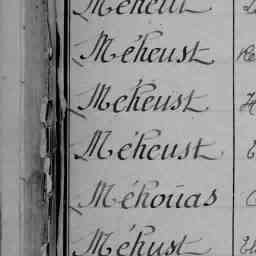 Méheut
Méheust
Méheust
Méheust
Méhoüas
Méhust